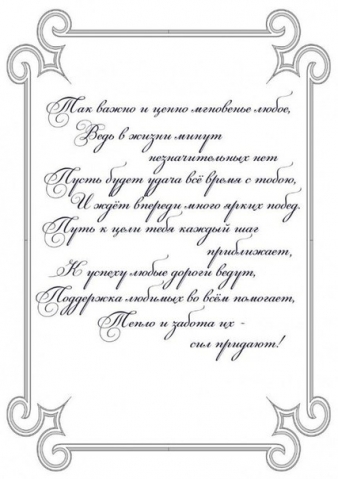 Так важно и ценно мгновенье любое,
Ведь в жизни минут
незначительных нет
Пусть будет удача всё время с тобою,
И ждёт впереди много ярких побед.
Путь к цели тебя каждый шаг
приближает,
К успеху любые дороги ведут,
Поддержка любимых во всём помогает,
Тепло и забота их -
сил придают!